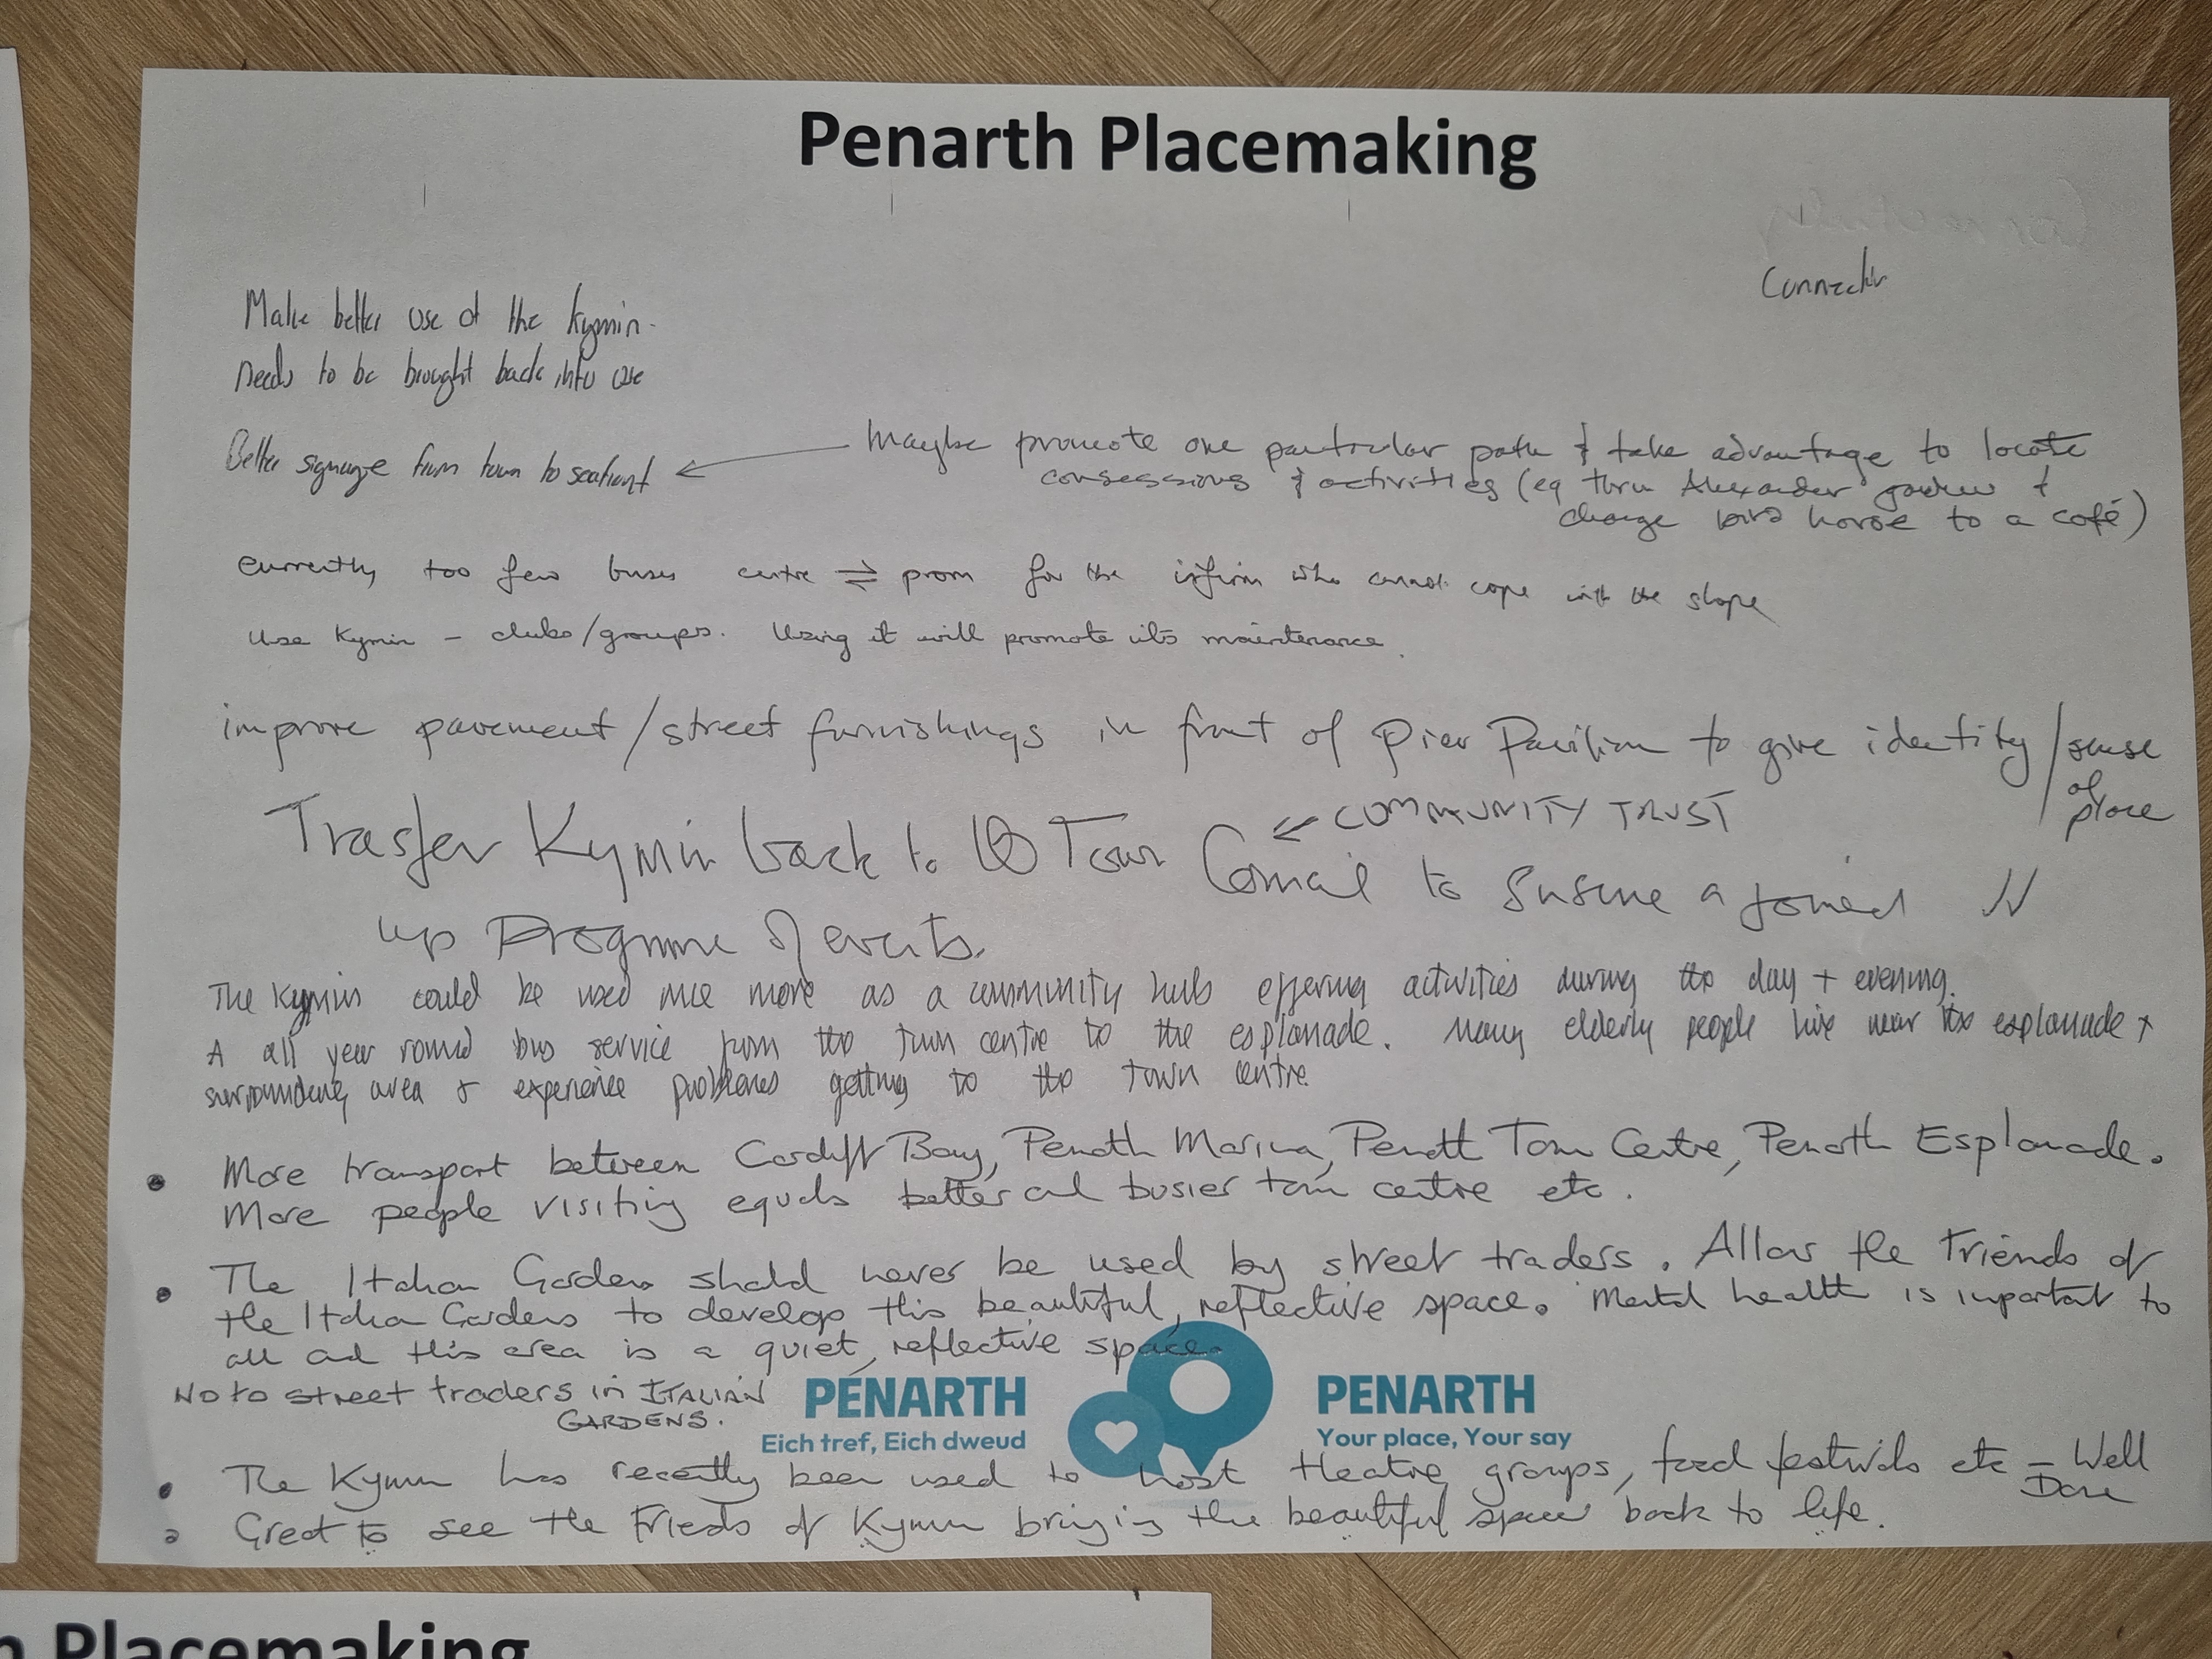 Penarth Placemaking
Make better use of the Kymin.
needs to be brought back into use
Better signage from town to seafront
Maybe promote one particular path & take advantage to locate
consessions & activities (eg thru Alexander garden &
change bird horse to a café)
currently too few buses centre ⇌ prom for the infirm who cannot cope with the slope
Use Kymin – clubs/groups. Using it will promote its maintenance.
improve pavement/street furnishings in front of Pier Pavilion to give identity/sense
of
place
← COMMUNITY TRUST
Trasfer Kymin back to Town Council to Ensure a joined
up Programme of events.
The Kymin could be used once more as a community hub offering activities during the day + evening.
A all year round bus service from the town centre to the esplanade. Many elderly people live near the esplanade +
surrounding area + experience problems getting to the town centre
• More transport between Cardiff Bay, Penarth Marina, Penarth Town Centre, Penarth Esplanade.
More people visiting equals better and busier town centre etc.
• The Italian Gardens should never be used by street traders. Allow the Friends of
the Italian Gardens to develop this beautiful, reflective space. Mental health is important to
all and this area is a quiet, reflective space.
No to street traders in ITALIAN
GARDENS.
PENARTH
Eich tref, Eich dweud
PENARTH
Your place, Your say
• The Kymin has recently been used to host theatre groups, food festivals etc – Well
Done
• Great to see the Friends of Kymin bringing the beautiful space back to life.
Placemaking